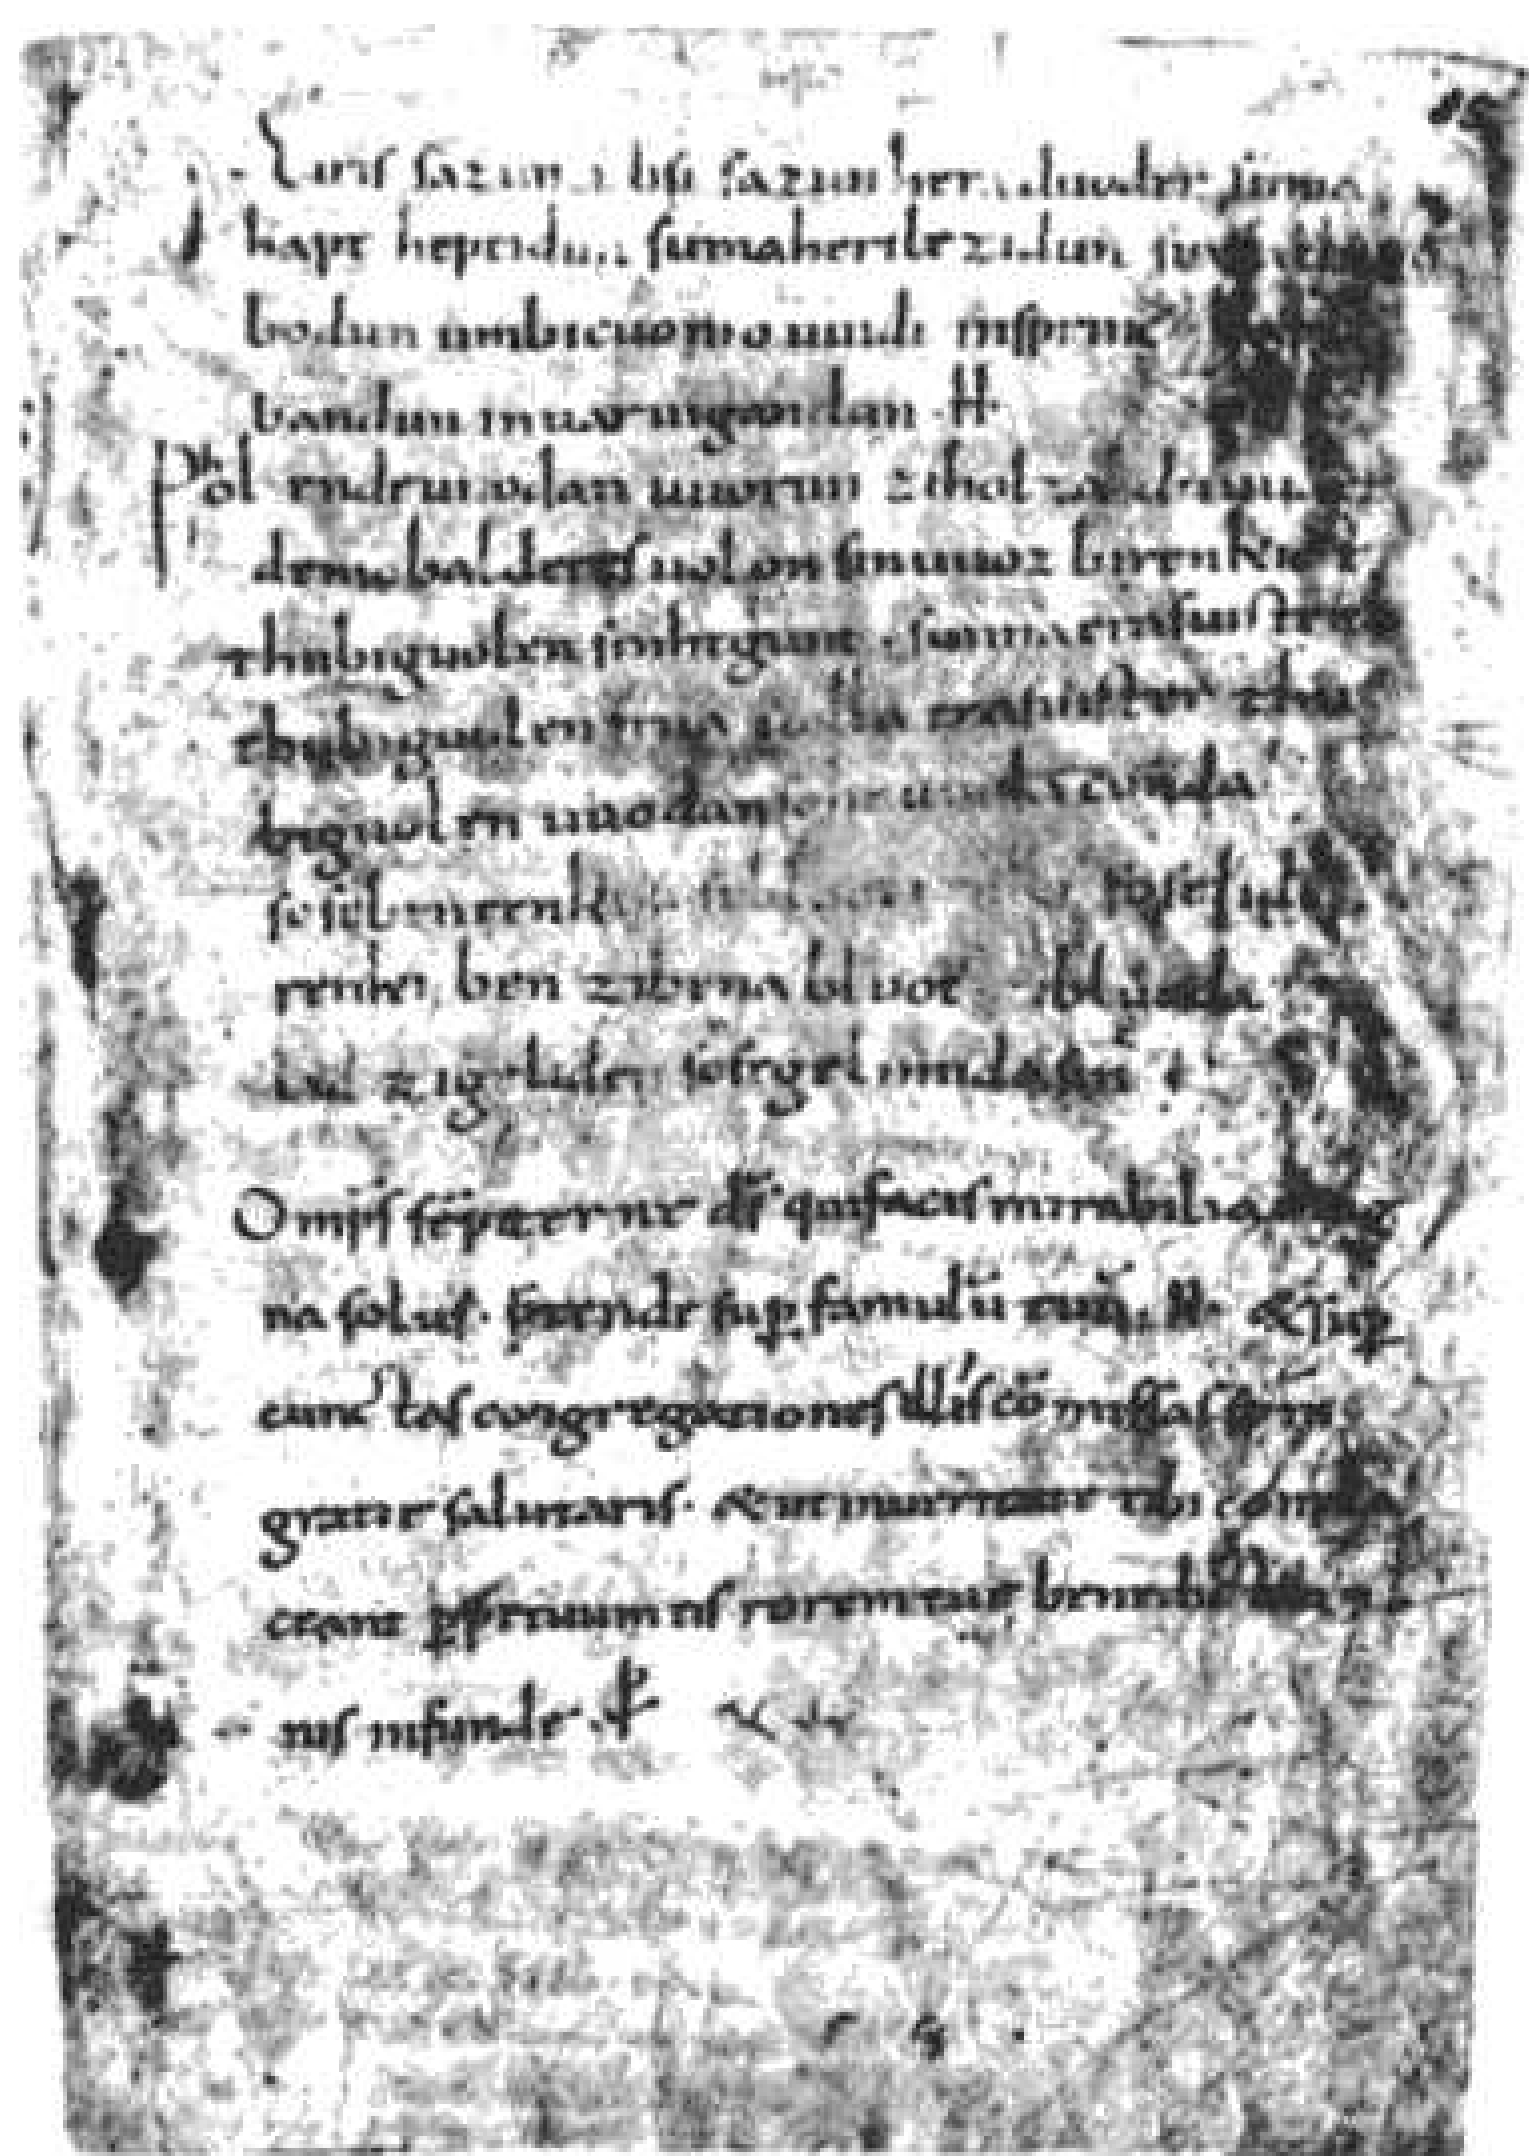 Eiris sazun idisi sazun hera duoder suma
hapt heptidun sumaherilezidun sumaclu
bodun umbicuoniouuidi insprinc hapt
bandun inuar uigandun ·H·
Phol endeuuodan uuorun ziholza du uuart
demobalderes uolon sinuuoz birenkict
thubiguolen sinhtgunt · sunnaerasuister
thubiguolen friia uolla erasuister thu
biguolen uuodan sohe uuolaconda
sosebenrenki sose bluotrenki soselidi
renki ben zibena bluot zibluoda
lid zigeliden sosegelimida sin ·
Omps sēpiterne d̄s quifacis mirabilia mag
na solus· p̄tende sup famulū tuū N· & sup
cunctas congregationes illis cōmissas sp̄m
gratie salutaris· &ut inueritate tibi compla
ceant ppetuum eis rorem tuę
nis infunde·